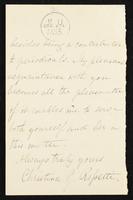 besides being a contributor
to periodicals. My pleasant
acquaintance with you
becomes all the pleasanter
if it enables me to serve
both yourself and her in
this matter.
Always truly yours
Christina G. Rossetti